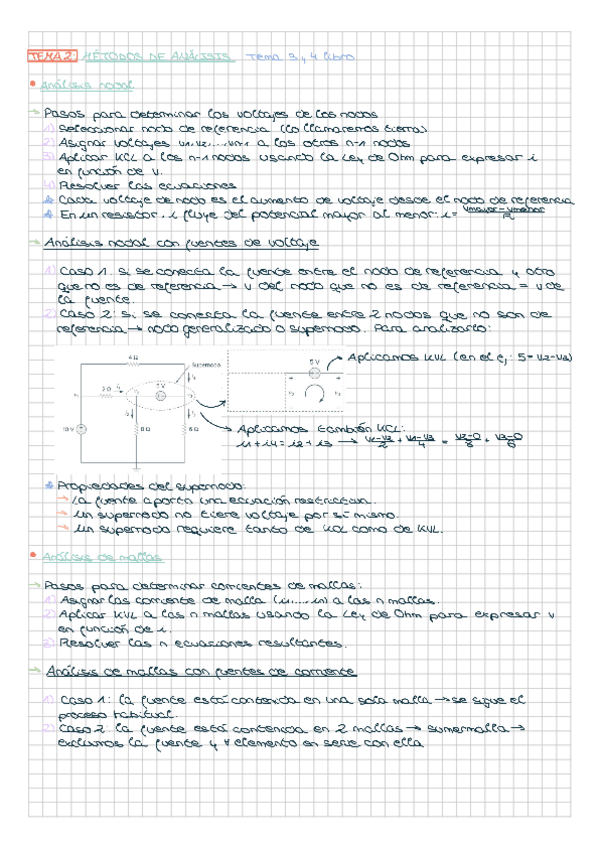 TEMA 2: MÉTODOS DE ANÁLISIS Tema 3, 4 libro
Análisis nodal
→ Pasos para determinar los voltajes de los nodos
1) Seleccionar nodo de referencia (lo llamaremos tierra)
2) Asignar voltajes v1, v2, ..., vn-1 a los otros n-1 nodos
3) Aplicar KCL a los n-1 nodos usando la Ley de Ohm para expresar i
en función de v.
4) Resolver las ecuaciones
Cada voltaje de nodo es el aumento de voltaje desde el nodo de referencia
En un resistor, i fluye del potencial mayor al menor: i = (vmayor - vmenor)/R
→ Análisis nodal con fuentes de voltaje
1) Caso 1: si se conecta la fuente entre el nodo de referencia y otro
que no es de referencia → v del nodo que no es de referencia = v de
la fuente.
2) Caso 2: si se conecta la fuente entre 2 nodos que no son de
referencia → nodo generalizado o supernodo. Para analizarlo:
4 Ω
Supernodo
5 V
2 Ω
10 V
8 Ω
6 Ω
5 V
Aplicamos KVL (en el ej: 5 = v2 - v3)
Aplicamos también KCL:
i1 + i4 = i2 + i3 → (v1-v2)/2 + (v1-v3)/4 = (v2-0)/8 + (v3-0)/6
Propiedades del supernodo:
→ La fuente aporta una ecuación restrictiva.
→ Un supernodo no tiene voltaje por sí mismo.
→ Un supernodo requiere tanto de KCL como de KVL.
Análisis de mallas
→ Pasos para determinar corrientes de mallas:
1) Asignar las corriente de malla (i1, ..., in) a las n mallas.
2) Aplicar KVL a las n mallas usando la Ley de Ohm para expresar v
en función de i.
3) Resolver las n ecuaciones resultantes.
→ Análisis de mallas con fuentes de corriente
1) Caso 1: la fuente está contenida en una sola malla → se sigue el
proceso habitual.
2) Caso 2: la fuente está contenida en 2 mallas → supermalla →
excluimos la fuente y ∀ elemento en serie con ella